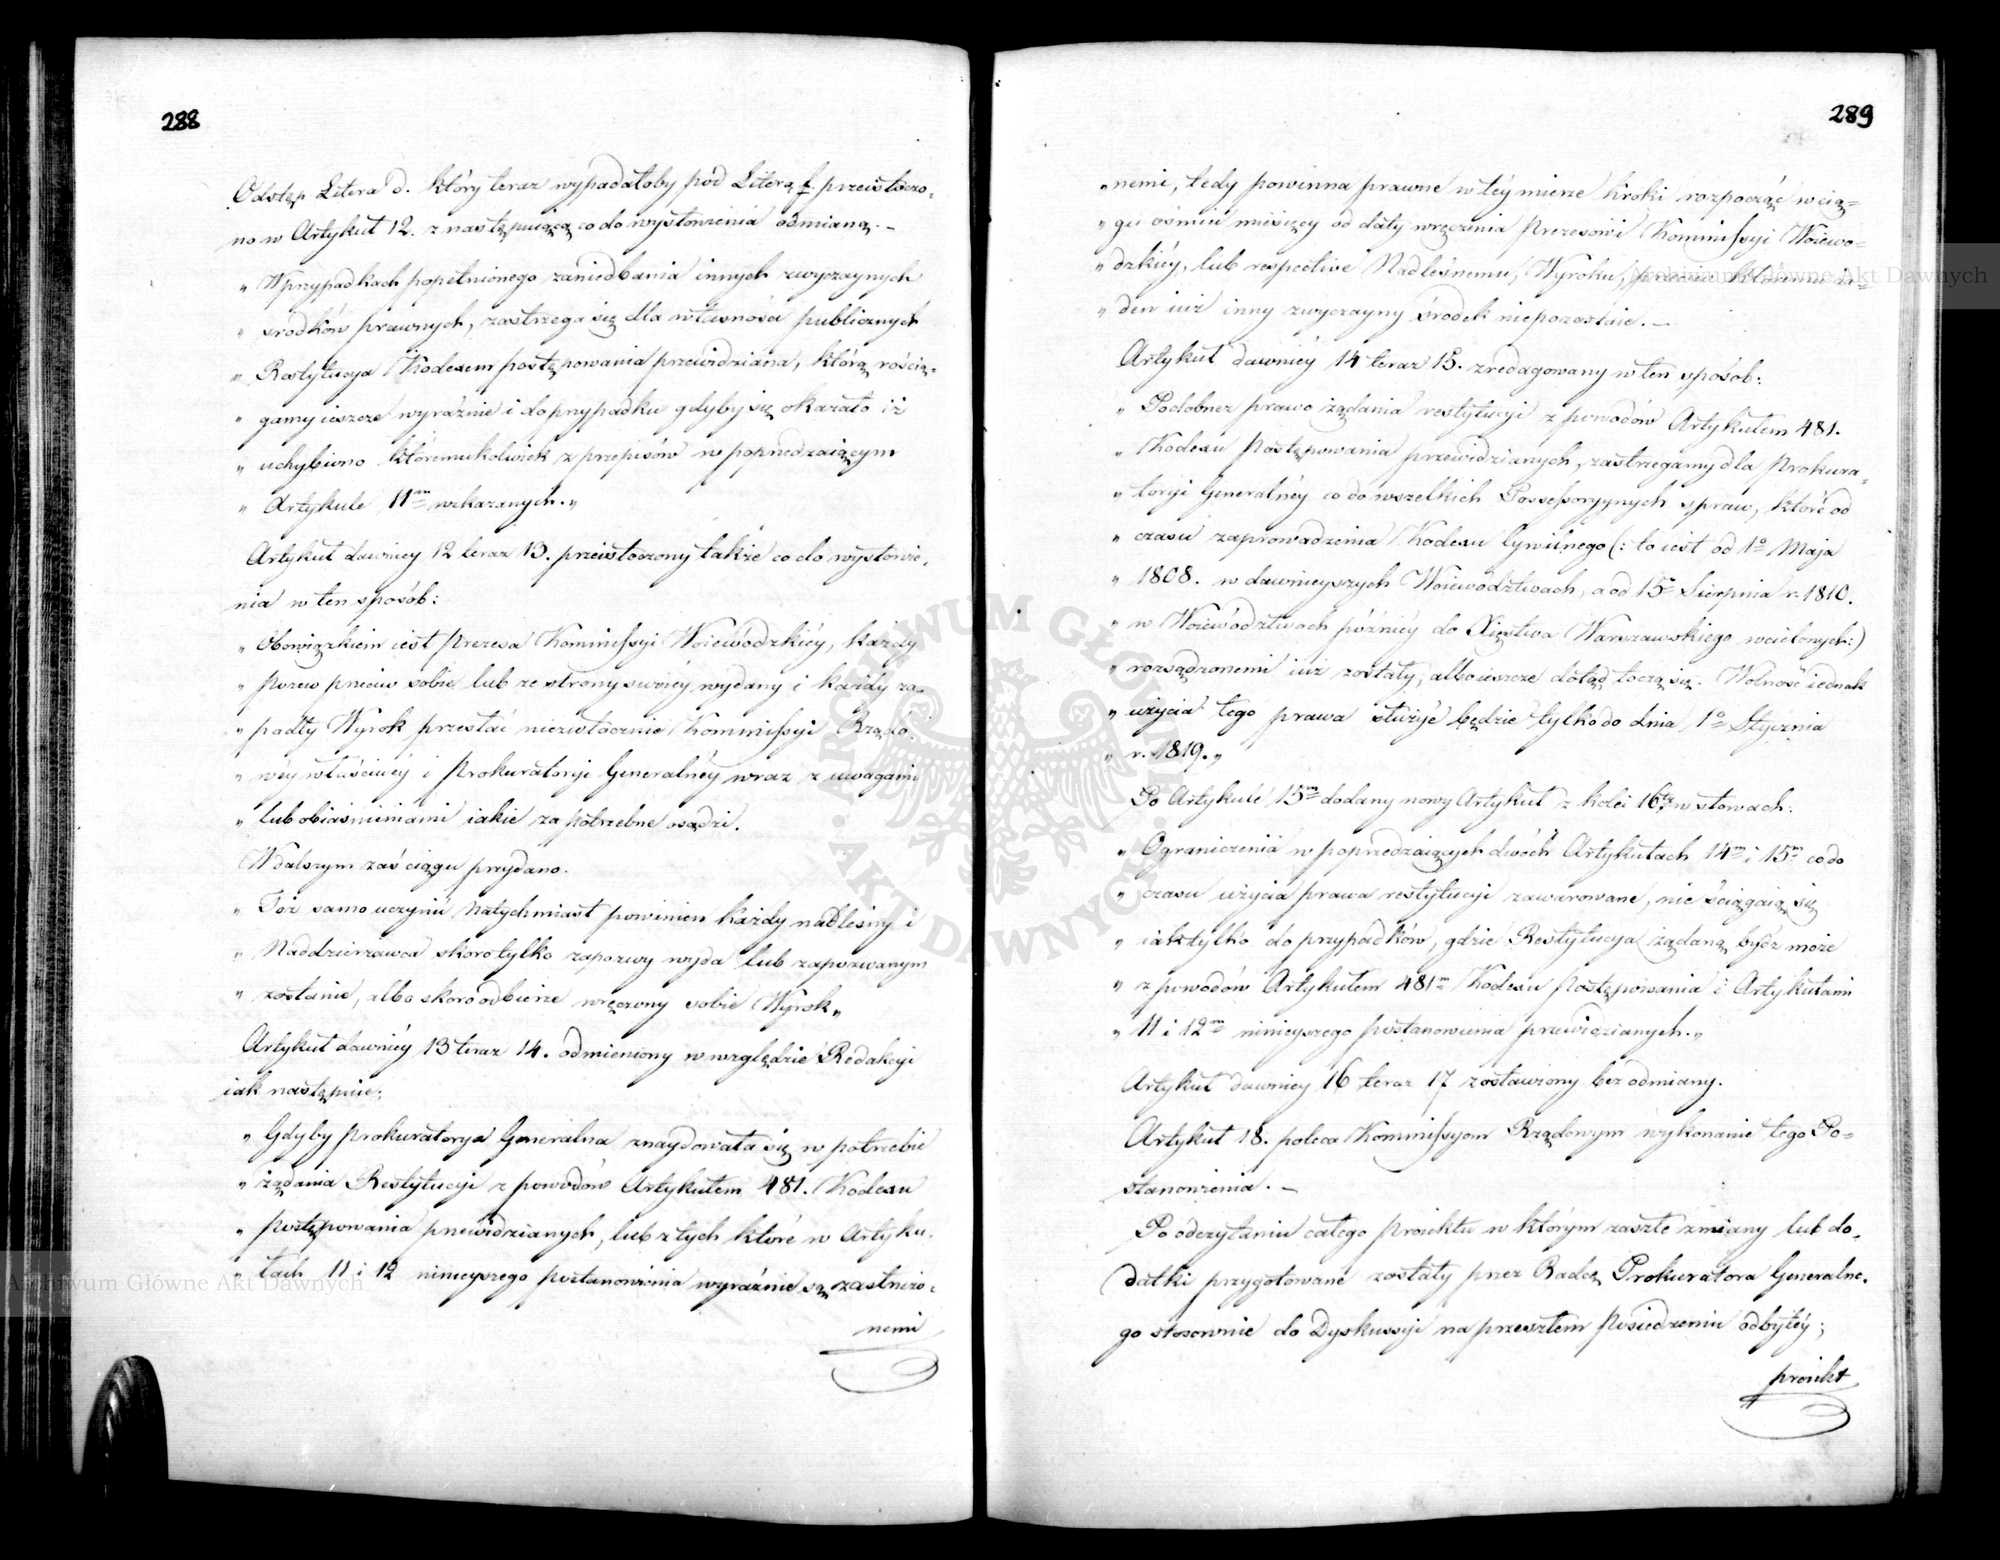 288
Odstęp Litera d. który teraz wypadałoby pod Literą f. przeistoczo-
no w Artykuł 12. z następuiącą co do wysłowienia odmianą. -
„ W przypadkach popełnionego zaniedbania innych zwyczaynych
„ srodków prawnych, zastrzega się dla własności publicznych
„ Restytucya Kodexem postępowania przewidziana, którą rością-
„ gamy ieszcze wyraźnie i do przypadku gdyby się okazało iż
„ uchybiono któremukolwiek z przepisów w poprzedzaiącym
„ Artykule 11m wskazanych. „
Artykuł dawniey 12 teraz 13. przeistoczony także co do wysłowie-
nia w ten sposób:
„ Obowiązkiem iest Prezesa Kommissyi Woiewódzkiéy, każdy
„ Pozew przeciw sobie lub ze strony swoiéy wydany i każdy za-
„ padły Wyrok przesłać niezwłocznie Kommissyi Rządo-
„ wéy właściwéy i Prokuratoryi Generalnéy wraz z uwagami
„ lub obiaśnieniami iakie za potrzebne osądzi.
W dalszym zaś ciągu przydano.
„ Toż samo uczynić natychmiast powinien każdy nadleśny i
„ Naddzierżawca skoro tylko zapozwy wyda lub zapozwanym
„ zostanie, albo skoro odbierze wręczony sobie Wyrok „
Artykuł dawniéy 13 teraz 14. odmieniony w względzie Redakcyi
iak następuie:
„ Gdyby Prokuratorya Generalna znaydowała się w potrzebie
„ żądania Restytucyi z powodów Artykułem 481. Kodexu
„ postępowania przewidzianych, lub z tych które w Artyku-
„ łach 11 i 12 ninieyszego postanowienia wyraźnie są zastrzeżo-
nemi
289
„ nemi, tedy powinna prawne w téy mierze kroki rozpocząć w cią=
„ gu ośmiu miesięcy od daty wręczenia Prezesowi Kommissyi Woiewo=
„ dzkiéy, lub respective Nadleśnemu, Wyroku, przeciw któremu ża=
„ den iuż inny zwyczayny środek niepozostaie. -
Artykuł dawniéy 14 teraz 15. zredagowany w ten sposób:
„ Podobneż prawo żądania restytucyi z powodów Artykułem 481.
„ Kodexu Postępowania przewidzianych, zastrzegamy dla Prokura-
„ toryi Generalnéy co do wszelkich Possessoryynych spraw, które od
„ czasu zaprowadzenia Kodexu Cywilnego (: to iest od 1o Maja
„ 1808. w dawnieyszych Woiewództwach, a od 15 Sierpnia r. 1810.
„ w Woiewództwach późniéy do Xięstwa Warszawskiego wcielonych:)
„ rozsądzonemi iuż zostały, albo ieszcze dotąd toczą się. Wolność iednak
„ użycia tego prawa służyć będzie tylko do dnia 1o Stycznia
„ r. 1819. „
Po Artykule 15m dodany nowy Artykuł z kolei 16ty w słowach:
„ Ograniczenia w poprzedzaiących dwóch Artykułach 14m i 15m co do
„ czasu użycia prawa restytucyi zawarowane, nie ściągaią się
„ iak tylko do przypadków, gdzie Restytucya żądaną bydź może
„ z powodów Artykułem 481m Kodexu Postępowania i Artykułami
„ 11 i 12m ninieyszego postanowienia przewidzianych. „
Artykuł dawniey 16 teraz 17 zostawiony bez odmiany.
Artykuł 18. poleca Kommissyom Rządowym wykonanie tego Po=
stanowienia. -
Po odczytaniu całego proiektu w którym zaszłe zmiany lub do-
datki przygotowane zostały przez Radcę Prokuratora Generalne-
go stosownie do Dyskussyi na przeszłem Posiedzeniu odbytéy;
proiekt
Archiwum Główne Akt Dawnych
Archiwum Główne Akt Dawnych
ARCHIWUM GŁÓWNE · AKT DAWNYCH ·